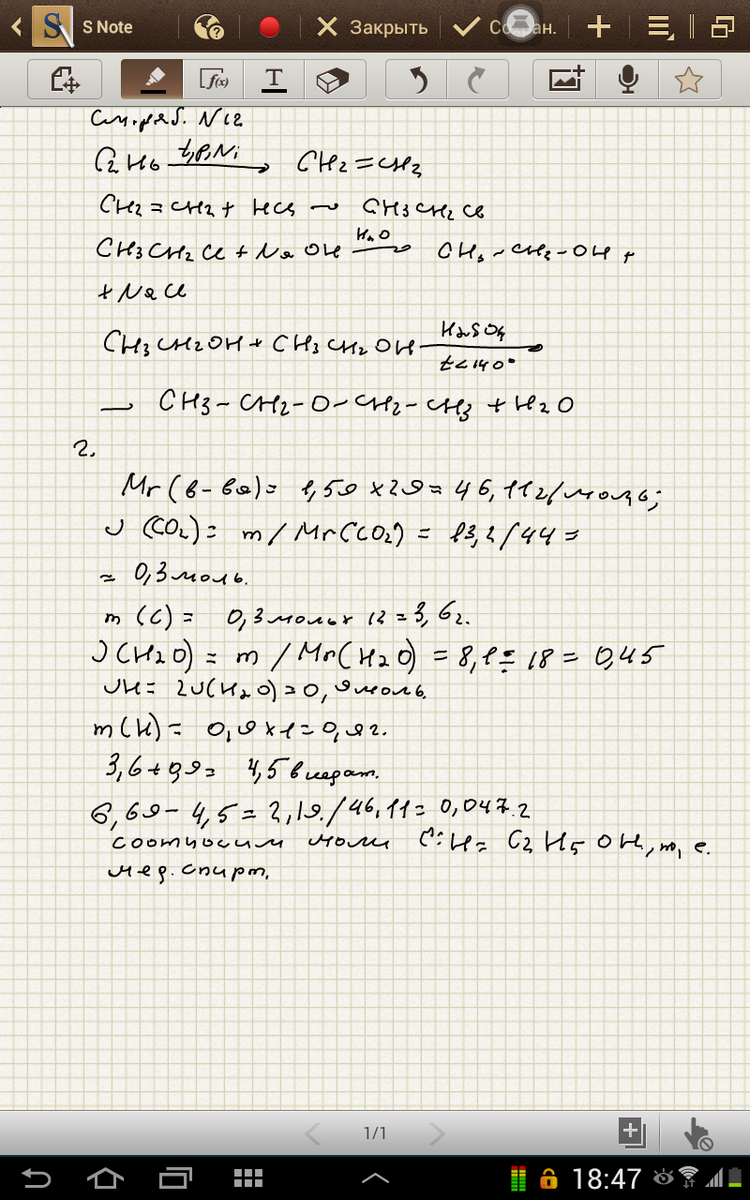 S Note
Закрыть
Сохран.
f(x)
T
См.раб. N12
C2H6 t,p,Ni → CH2=CH2
CH2=CH2+ HCl → CH3CH2Cl
CH3CH2Cl + NaOH H2O → CH3-CH2-OH +
+ NaCl
CH3CH2OH + CH3CH2OH H2SO4 t<140°
→ CH3-CH2-O-CH2-CH3 + H2O
2.
Mr(в-ва)= 1,59 x 29= 46,11г/моль;
ν (CO2)= m/Mr(CO2) = 13,2/44=
= 0,3моль.
m (C) = 0,3моль x 12 = 3,6г.
ν(H2O) = m/Mr(H2O) = 8,1÷18 = 0,45
νH= 2ν(H2O)=0,9моль.
m(H)= 0,9x1=0,9г.
3,6+0,9= 4,5
6,69-4,5=2,19./46,11=0,047.г
соотносим моли C:H= C2H5OH, т, е.
мед.спирт.
1/1
18:47